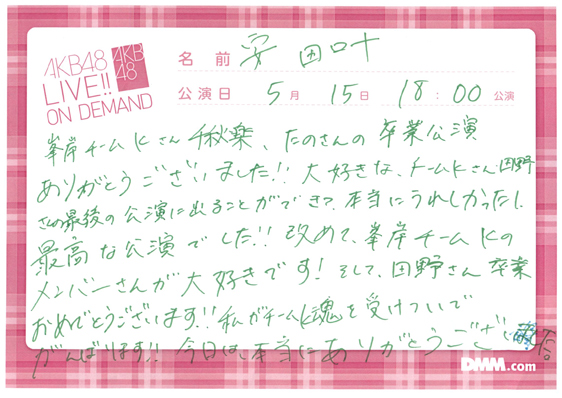 AKB48
LIVE!!
ON DEMAND
AKB
48
名前 安田叶
公演日 5月 15日 18:00 公演
峯岸チームKさん千秋楽、たのさんの卒業公演
ありがとうございました!! 大好きな、チームKさん田野
さんの最後の公演に出ることができて、本当にうれしかったし、
最高な公演でした!! 改めて、峯岸チームKの
メンバーさんが大好きです! そして、田野さん卒業
おめでとうございます!! 私がチームK魂を受けついで
がんばります!! 今日は、本当にありがとうござい
DMM.com